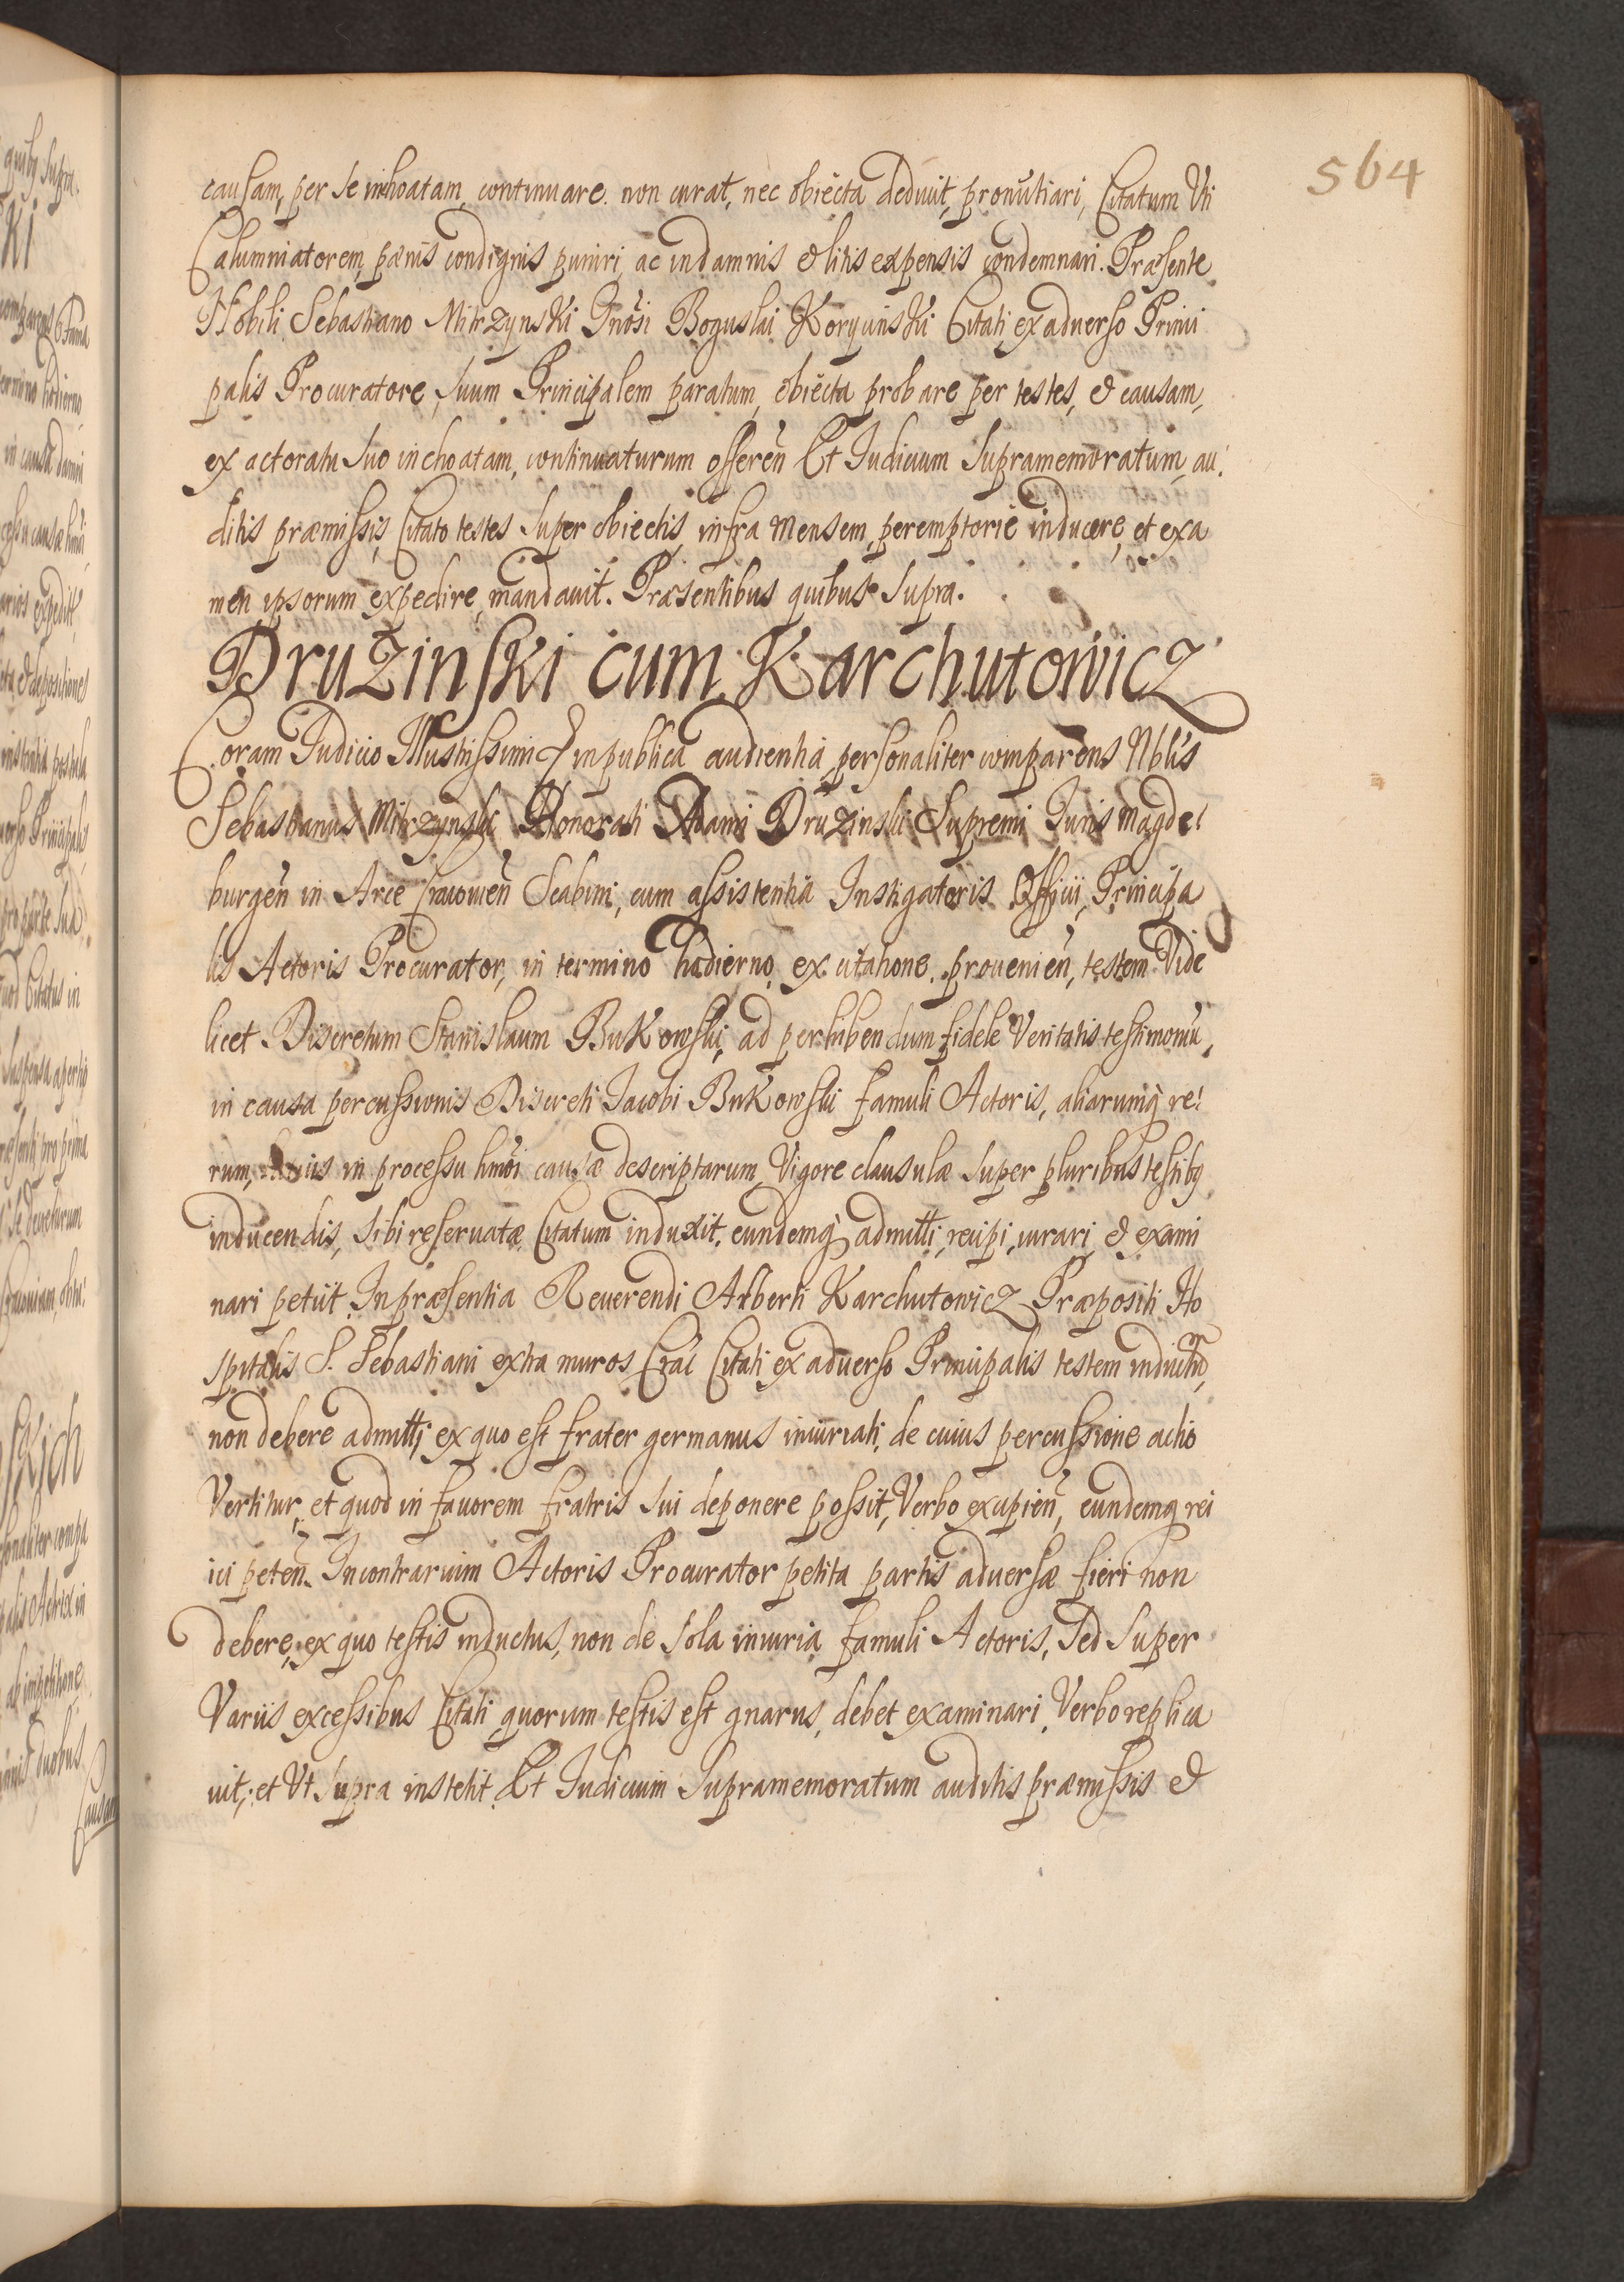 564
causam, per se inchoatam, continuare non curat, nec obiecta deduxit, pronūtiari, Citatum Vti
Calumniatorem, pænis condignis puniri, ac in damnis & litis expensis condemnari. Præsente
Nobili Sebastiano Mitrzynski Gnōsi Boguslai Korycinski Citati, ex aduerso Princi
palis Procuratore, suum Principalem paratum, obiecta probare per testes, & causam,
ex actoratu suo inchoatam, continuaturum offerēn Et Iudicium supramemoratum, au:
ditis præmissis, Citato testes super obiectis, infra mensem, peremptorie inducere, et exa
men ipsorum expedire, mandauit. Præsentibus quibus supra.
Druzinski cum Karchutowicz
Coram Iudicio Illustrissimi & in publica audientia, personaliter comparens Nblis
Sebastianus Mitrzynski Honorati Adami Druzinski Supremi Iuris Magde:
burgēn in Arce Cracouiēn Scabini, cum assistentia Instigatoris Officii, Principa
lis Actoris Procurator, in termino hodierno, ex citatione proueniēn, testem Vide
licet Discretum Stanislaum Bukowski, ad perhibendum fidele Veritatis testimoniū,
in causa percussionis Discreti Iacobi Bukowski famuli Actoris, aliarumq̀ re:
rum, in processu hmōi causæ descriptarum, Vigore clausulæ super pluribus testibꝫ
inducendis, sibi reseruatæ, Citatum induxit, eundemq̀ admitti, recipi, iurari, & exami
nari petiit. In præsentia Reuerendi Alberti Karchutowicz Præpositi Ho
spitalis S. Sebastiani extra muros Crac̄ Citati, ex aduerso Principalis testem inductū,
non debere admitti, ex quo est frater germanus iniuriati, de cuius percussione actio
Vertitur, et quod in fauorem fratris sui deponere possit, Verbo excipiēn, eundemq̀ rei
ici petēn. In contrarium Actoris Procurator petita partis aduersæ fieri non
debere, ex quo testis inductus, non de sola iniuria famuli Actoris, sed super
Variis excessibus Citati, quorum testis est gnarus, debet examinari, Verbo replica
uit, et Vt supra institit. Et Iudicium supramemoratum auditis præmissis &